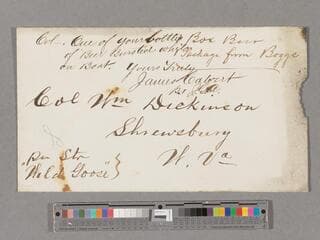 Col. One of your bottles Box Beer
of Beer Bursted Why Package from Boggs
on Boat. Yours Truly
James Calvert
Col Wm Dickinson
Shrewsbury
W. Va
"Per Str
Wild Goose"